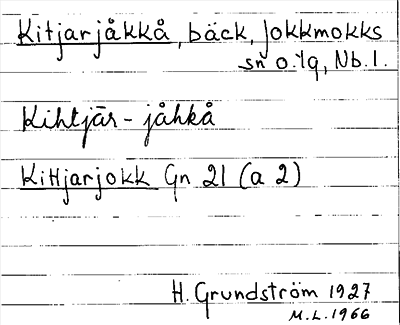 Kitjarjåkkå, bäck, Jokkmokks
sn o. lg, Nb. l.
Kihtjār - jåhkå
Kittjarjokk Gn 21 (a 2)
H. Grundström 1927
M.L. 1966